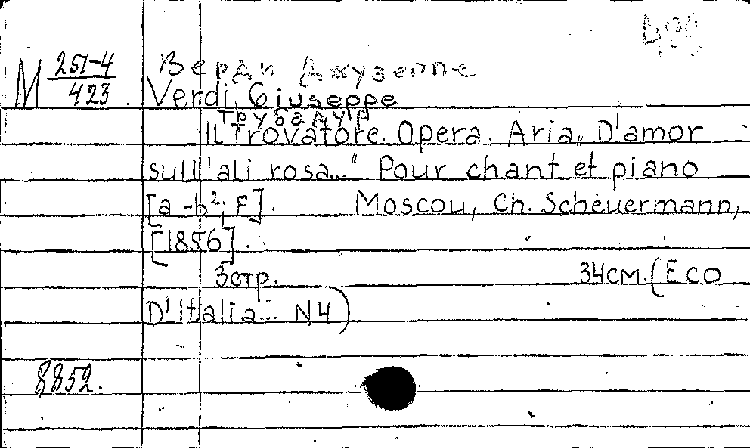 М 251-4/423
Верди Джузеппе
Verdi, Giuseppe
Трубадур
Il Trovatore. Opera. Aria „D'amor
sull'ali rosa..." Pour chant et piano
[a - b², F]. Moscou, Ch. Scheuermann,
[1856].
3стр. 34см. (Eco
D'Italia... N4)
8852.